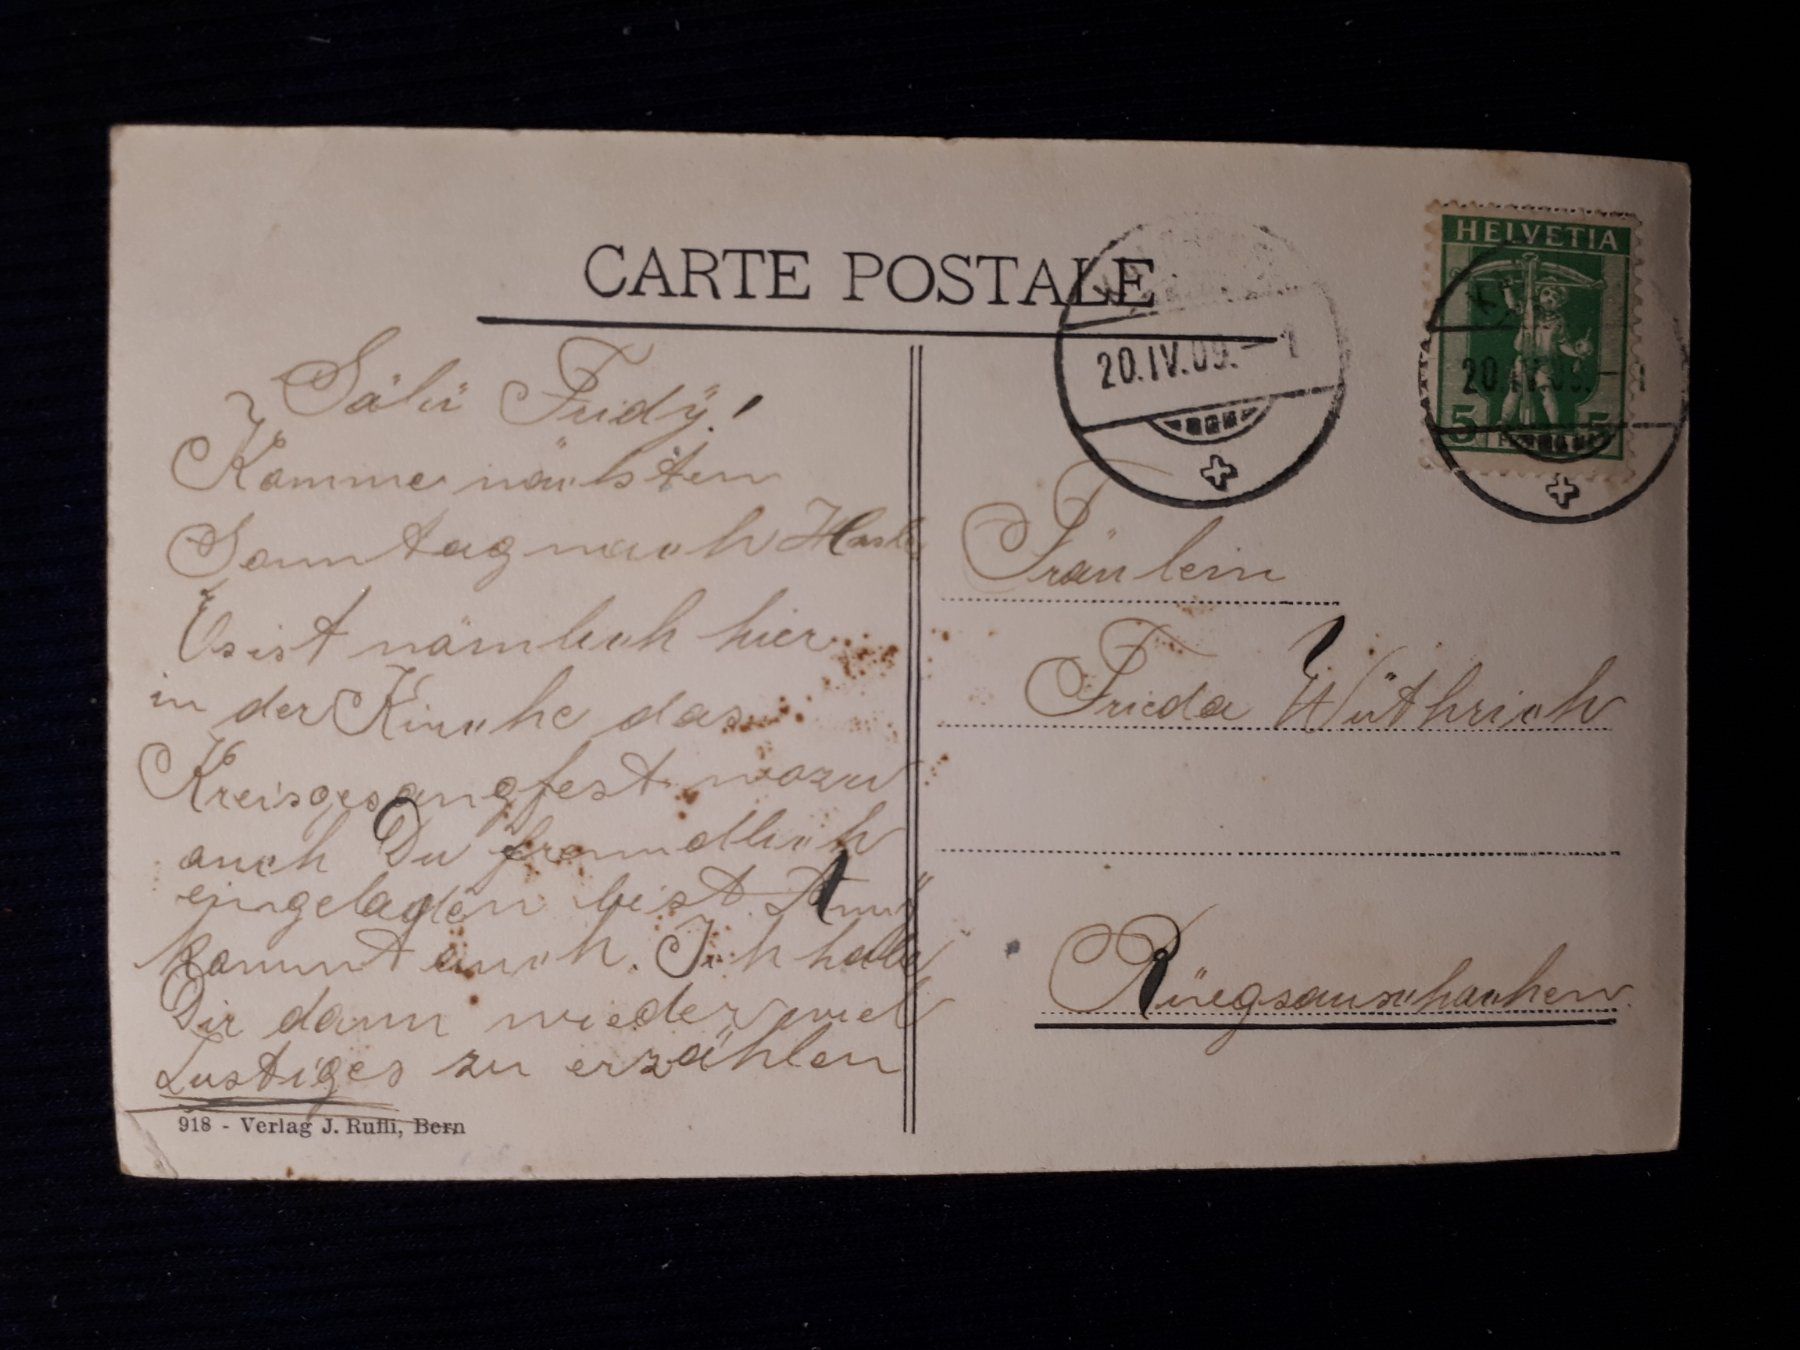 CARTE POSTALE
HELVETIA
20.IV.09.-1
20.IV.09.-1
5 5
Sälü Fridÿ!
Komme nächsten
Sonntag nach Hasle
Es ist nämlich hier
in der Kirche das
Kreisgesangfest wozu
auch Du freundlich
eingeladen bist.
kommt auch. Ich habe
Dir dann wieder viel
Lustiges zu erzählen
918 - Verlag J. Ruffi, Bern
Fräulein
Frieda Wüthrich
Rüegsauschachen.